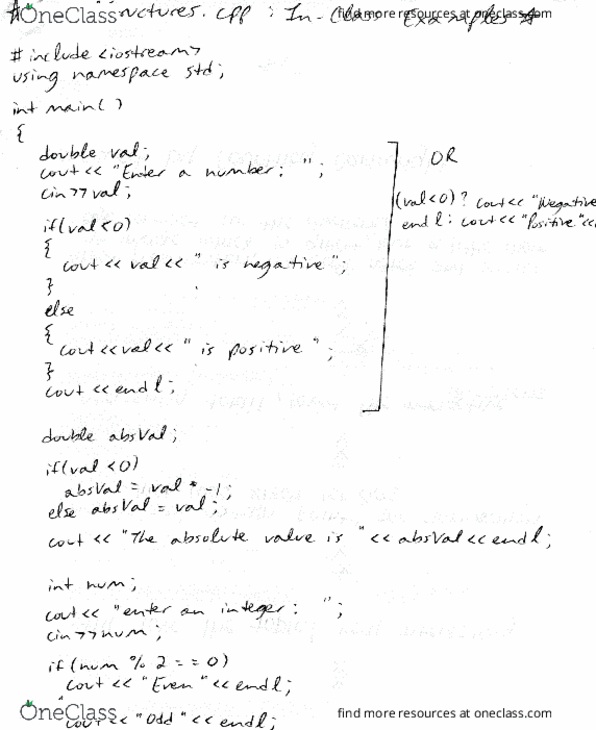 OneClass
find more resources at oneclass.com
ructures.cpp : In-Class Examples
#include <iostream>
using namespace std;
int main()
{
double val;
cout<< "Enter a number: ";
cin>>val;
if(val<0)
{
cout<< val<< " is negative";
}
else
{
cout<<val<< " is positive ";
}
cout<<endl;
OR
(val<0)? cout<< "Negative
endl: cout<<"Positive"<<
double absVal;
if(val<0)
absVal = val * -1;
else absVal = val;
cout << "The absolute value is "<<absVal<<endl;
int num;
cout<< "enter an integer: ";
cin>>num;
if(num % 2 == 0)
cout << "Even"<<endl;
cout<< "Odd"<<endl;
OneClass
find more resources at oneclass.com